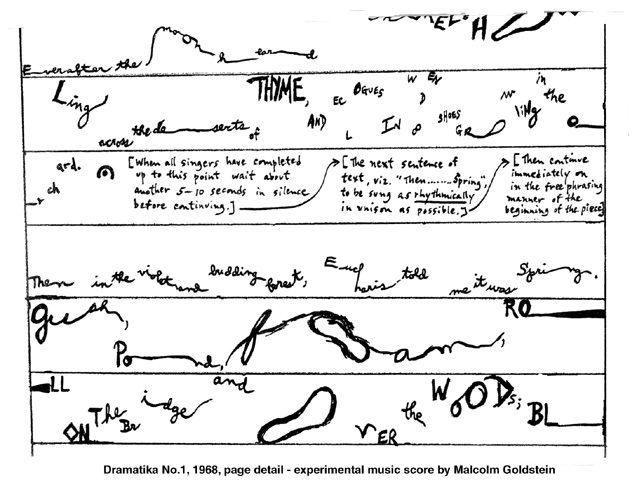 EL. H
Everafter the moon h ear d
Ling across the de serts of THYME, AND EC L OGUES IN W OO D EN SHOES GR OW lING in the o
r ch ard.
[When all singers have completed
up to this point wait about
another 5–10 seconds in silence
before continuing.]
[The next sentence of
text, viz. "Then........Spring",
to be sung as rhythmically
in unison as possible.]
[Then continue
immediately on
in the free phrasing
manner of the
beginning of the piece]
Then in the violet and budding forest, Euch haris told me it was Spring.
gush, Po nd, f o am, RO
LL ON The Br idge and O VER the WOODs; BL
Dramatika No.1, 1968, page detail - experimental music score by Malcolm Goldstein